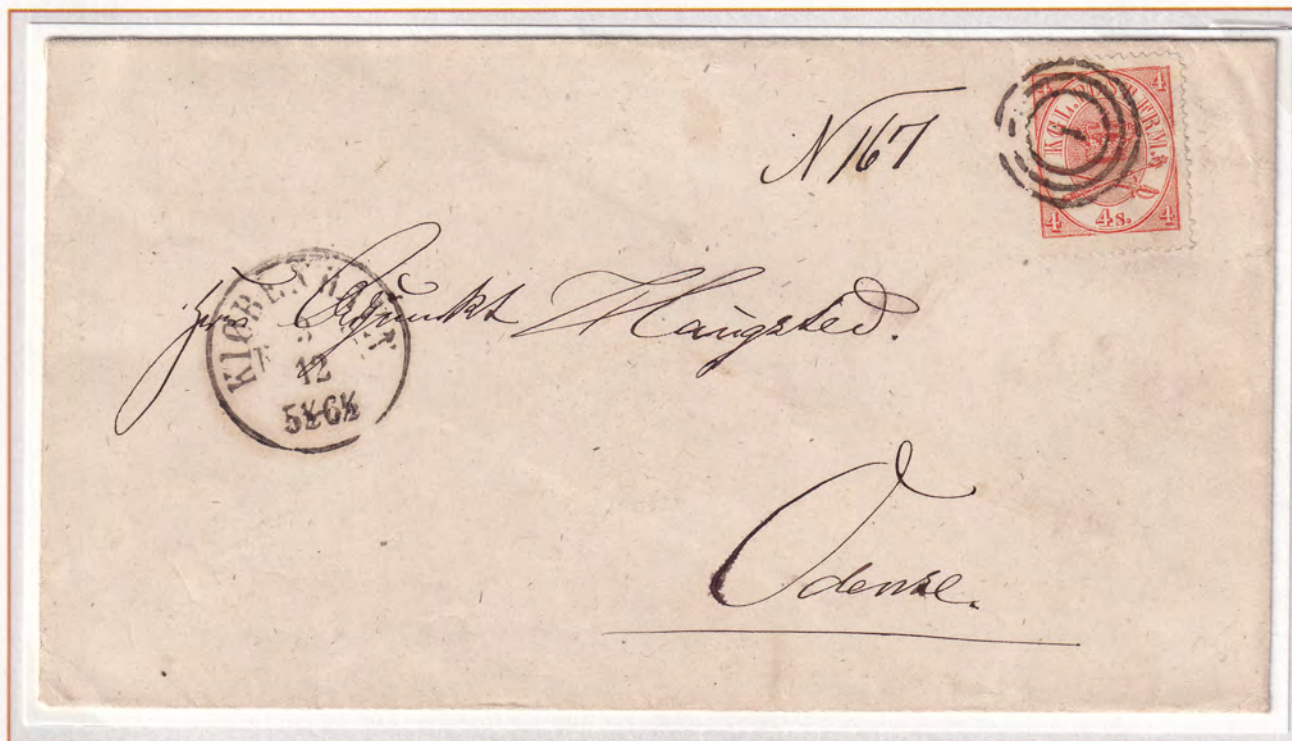 N 167
4 4
KGL. POST FRM.
4 4s. 4
1
KIØBENHAVN
12
5½-6½
Adjunkt Haugsted.
Odense.